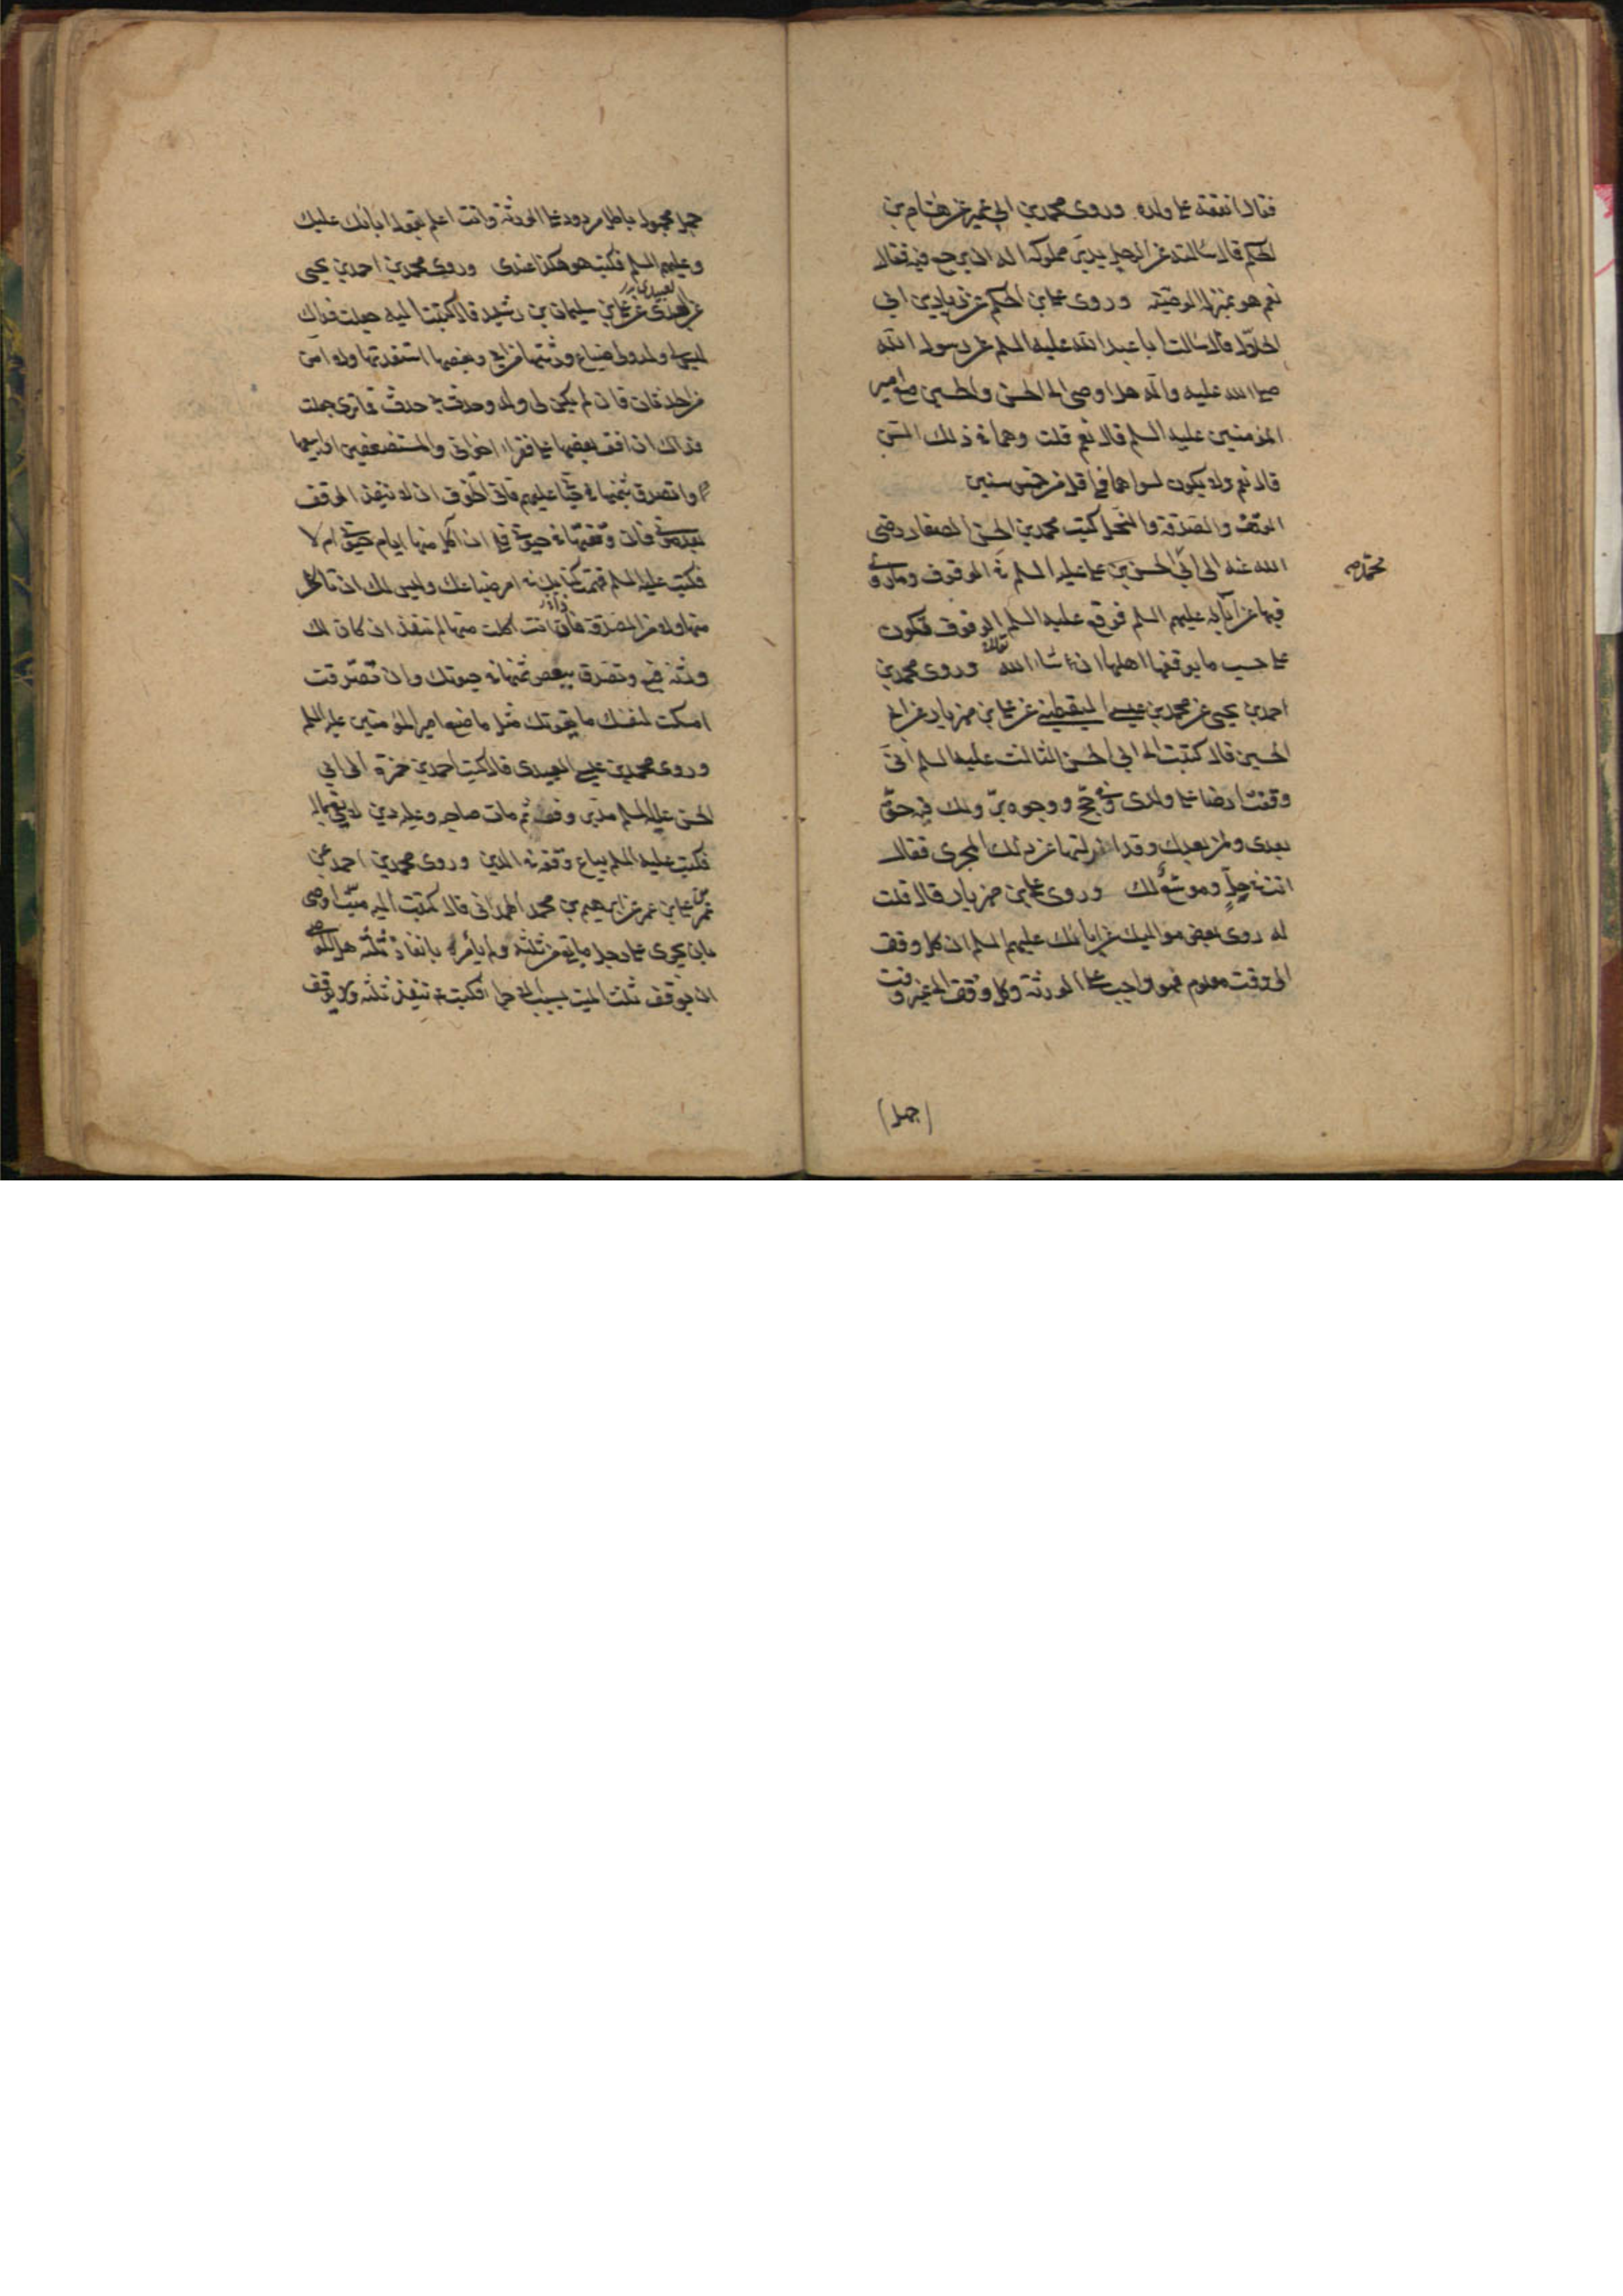 فقال انفقه على ولده وروى محمد بن ابي عمير عن هشام بن
الحكم قال سالته عن الرجل يدبر مملوكه اله ان يرجع فيه فقال
نعم هو بمنزلة الوصية وروى علي بن الحكم عن زياد بن ابي
الحلال قال سالت ابا عبد الله عليه السلم عن رسول الله
صلى الله عليه واله هل اوصى الى الحسن والحسين مع امير
المؤمنين عليه السلم قال نعم قلت وهما في ذلك السن
قال نعم ولا يكون لسواهما في اقل من خمس سنين
الوقف والصدقة والنحل كتب محمد بن الحسن الصفار رضي
الله عنه الى ابي الحسن بن علي عليه السلم في الوقوف وما روي
محمد
فيها عن آبائه عليهم السلم فوقع عليه السلم الوقوف تكون
على حسب ما يوقفها اهلها ان شاء الله تعالى وروى محمد بن
احمد بن يحيى عن محمد بن عيسى اليقطيني عن علي بن مهزيار عن ابي
الحسين قال كتبت الى ابي الحسن الثالث عليه السلم اني
وقفت ارضا على ولدي وفي حج ووجوه بر ولك فيه حق
بعدي ولمن بعدك وقد ازلتها عن ذلك المجرى فقال
انت في حل وموسع لك وروى علي بن مهزيار قال قلت
له روى بعض مواليك عن ابائك عليهم السلم ان كل وقف
الى وقت معلوم فهو واجب على الورثة وكل وقف الى غير وقت
(جهل)
جهل مجهول باطل مردود على الورثة وانت اعلم بقول ابائك عليك
وعليهم السلم فكتب هو هكذا عندي وروى محمد بن احمد بن يحيى
عن العبيدي عن علي بن سليمان بن رشيد قال كتبت اليه جعلت فداك
ليس لي ولد ولي ضياع ورثتها من ابي وبعضها استفدتها ولا امن
من الحدثان فان لم يكن لي ولد وحدث بي حدث فما ترى جعلت
فداك ان اقف بعضها على فقراء اخواني والمستضعفين او ابيعها
واتصدق بثمنها في حيوتي عليهم فاني اتخوف ان لا ينفذ الوقف
بعد موتي فان وقفتها في حيوتي فلي ان آكل منها ايام حيوتي ام لا
فكتب عليه السلم فهمت كتابك في امر ضياعك وليس لك ان تاكل
منها ولا من الصدقة فان انت اكلت منها لم تنفذ ان كان لك
ورثة فبع وتصدق ببعض ثمنها في حيوتك وان تصدقت
امسكت لنفسك ما يقوتك مثل ما صنع امير المؤمنين عليه السلم
وروى محمد بن عيسى العبيدي قال كتب احمد بن حمزة الى ابي
الحسن عليه السلم مدبر وقف ثم مات صاحبه وعليه دين لا يفي بماله
فكتب عليه السلم يباع وقفه في الدين وروى محمد بن احمد عن
عمر بن علي بن عمر عن ابرهيم بن محمد الهمداني قال كتبت اليه ميت اوصى
بان يجرى على رجل ما بقي من ثلثه ولم يأمر بانفاذ ثلثه هل للوصي
ان يوقف ثلث الميت بسبب الاجراء فكتب ينفذ ثلثه ولا يوقف